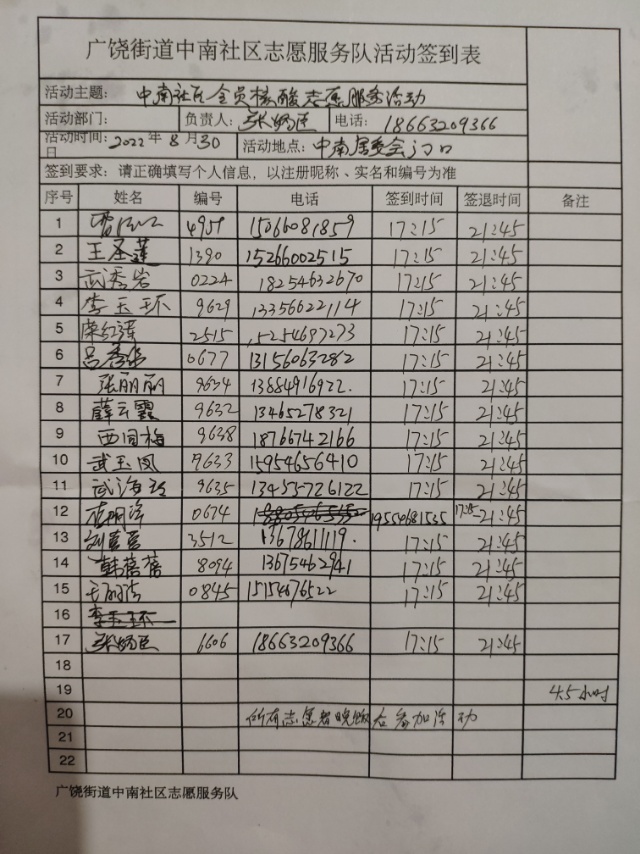 广饶街道中南社区志愿服务队活动签到表
活动主题： 中南社区全员核酸志愿服务活动
活动部门： 负责人： 电话： 18663209366
活动时间：2022年8月30日 活动地点：中南居委会门口
签到要求：请正确填写个人信息，以注册昵称、实名和编号为准
序号 姓名 编号 电话 签到时间 签退时间 备注
1 4959 15066081859 17:15 21:45
2 王圣莲 1390 15266002515 17:15 21:45
3 武秀岩 0224 18254632670 17:15 21:45
4 李玉环 9629 13356622114 17:15 21:45
5 2515 15254697273 17:15 21:45
6 吕秀华 0677 13156063282 17:15 21:45
7 张丽丽 9634 13884916922. 17:15 21:45
8 薛云霞 9632 13465278321 17:15 21:45
9 西同梅 9638 18766742166 17:15 21:45
10 武玉凤 9633 15954656410 17:15 21:45
11 武海玲 9635 13455726122 17:15 21:45
12 0674 19550681535 17:15 21:45
13 3512 13678611119. 17:15 21:45
14 韩蓓蓓 8094 13675462941 17:15 21:45
15 0845 15154676522 17:15 21:45
16 李玉环
17 6606 18663209366 17:15 21:45
18
19 4.5小时
20 所有志愿者晚饭后参加活动
21
22
广饶街道中南社区志愿服务队